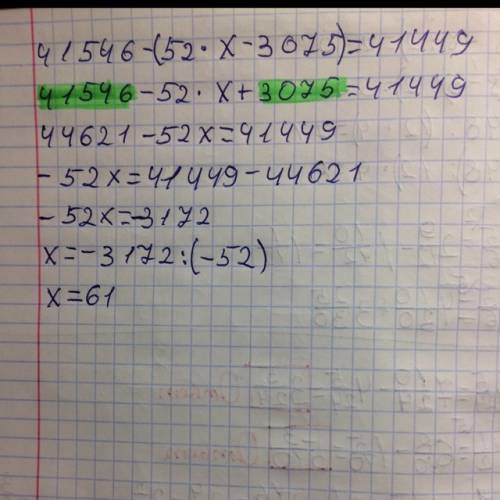 41546-(52·x-3075)=41449
41546-52·x+3075=41449
44621-52x=41449
-52x=41449-44621
-52x=-3172
x=-3172:(-52)
x=61